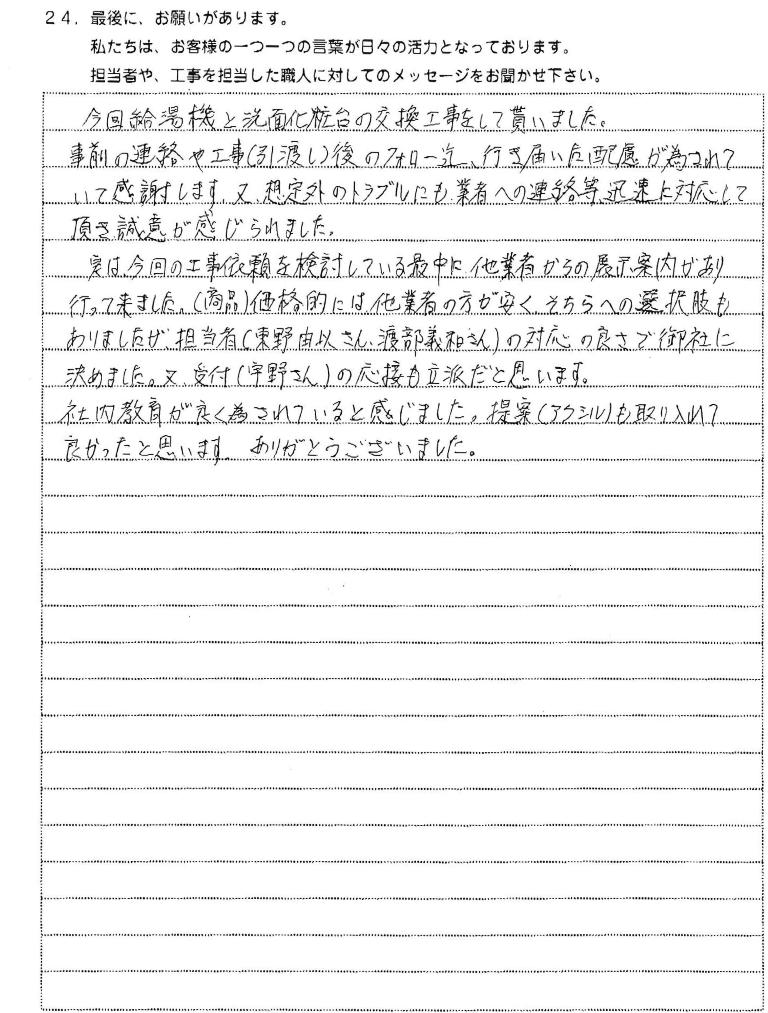 24．最後に、お願いがあります。
私たちは、お客様の一つ一つの言葉が日々の活力となっております。
担当者や、工事を担当した職人に対してのメッセージをお聞かせ下さい。
今回給湯機と洗面化粧台の交換工事をして貰いました。
事前の連絡や工事(引渡し)後のフォロー迄、行き届いた配慮が為されて
いて感謝します。又、想定外のトラブルにも業者への連絡等、迅速に対応して
頂き誠意が感じられました。
実は、今回の工事依頼を検討している最中に他業者からの展示案内があり
行って来ました。(商品)価格的には他業者の方が安く、そちらへの選択肢も
ありましたが、担当者(東野由以さん、渡部義和さん)の対応の良さで御社に
決めました。又、受付(宇野さん)の応接も立派だと思います。
社内教育が良く為されていると感じました。提案(アクシル)も取り入れて
良かったと思います。ありがとうございました。